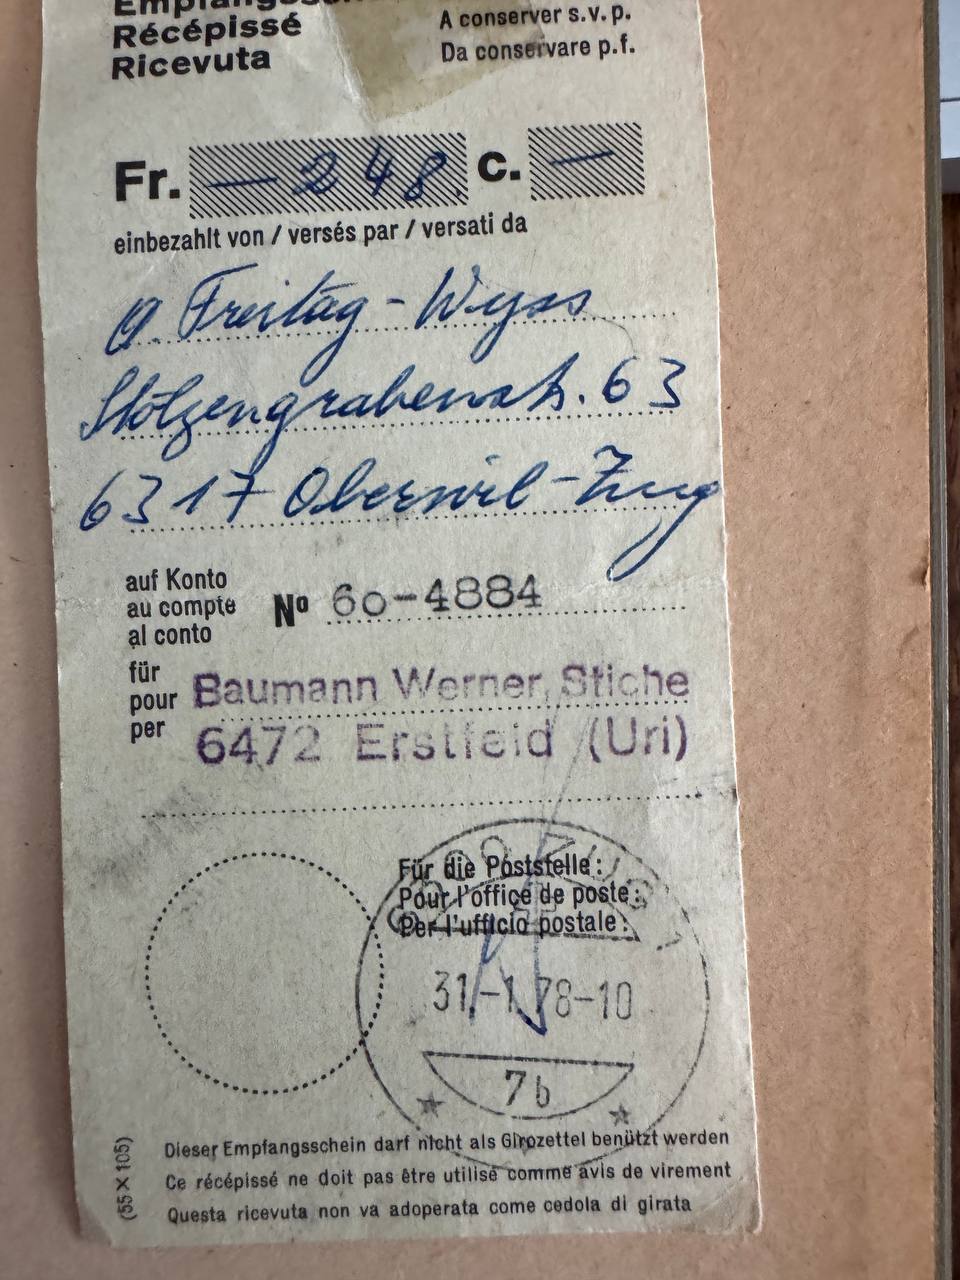 Empfangsschein
Récépissé
Ricevuta
A conserver s.v.p.
Da conservare p.f.
Fr. — 248. c. —
einbezahlt von / versés par / versati da
A. Freitag-Wyss
Stolzengrabenstr. 63
6317 Oberwil-Zug
auf Konto
au compte
al conto
No 60-4884
für
pour
per
Baumann Werner, Stiche
6472 Erstfeld (Uri)
Für die Poststelle:
Pour l'office de poste:
Per l'ufficio postale:
6300 ZUG 1
31.-1.78-10
7b
Dieser Empfangsschein darf nicht als Girozettel benützt werden
Ce récépissé ne doit pas être utilisé comme avis de virement
Questa ricevuta non va adoperata come cedola di girata
(55 X 105)